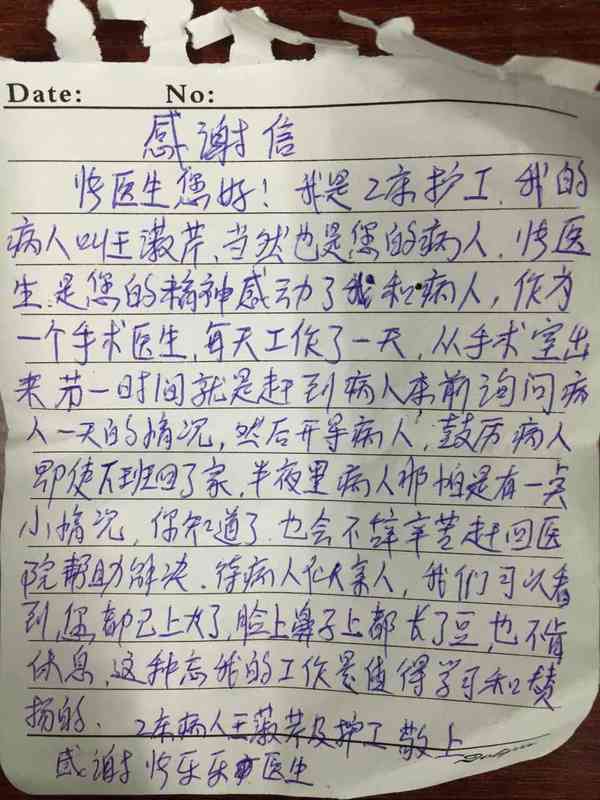 Date: No:
感谢信
快医生您好！我是2床护工,我的
病人叫王淑芹、当然也是您的病人.快医
生.是您的精神感动了我和病人，作为
一个手术医生,每天工作了一天，从手术室出
来第一时间就是赶到病人床前询问病
人一天的情况，然后开导病人,鼓厉病人
即使下班回了家,半夜里病人那怕是有一点
小情况，你知道了.也会不辞辛苦赶回医
院帮助解决.待病人似亲人，我们可以看
到,您都已上火了,脸上鼻子上都长了豆,也不肯
休息,这种忘我的工作是值得学习和赞
扬的. 2床病人王淑芹及护工敬上
感谢快乐乐医生